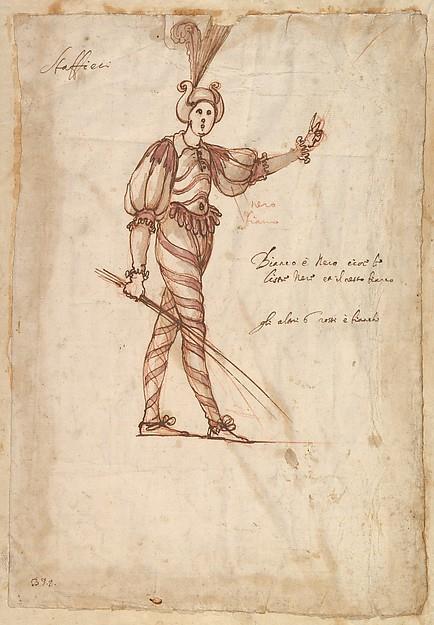 Staffieri
nero
biancho
Bianco è Nero cioè le
liste Neri et il resto bianco
gli altri 6 rossi è bianchi